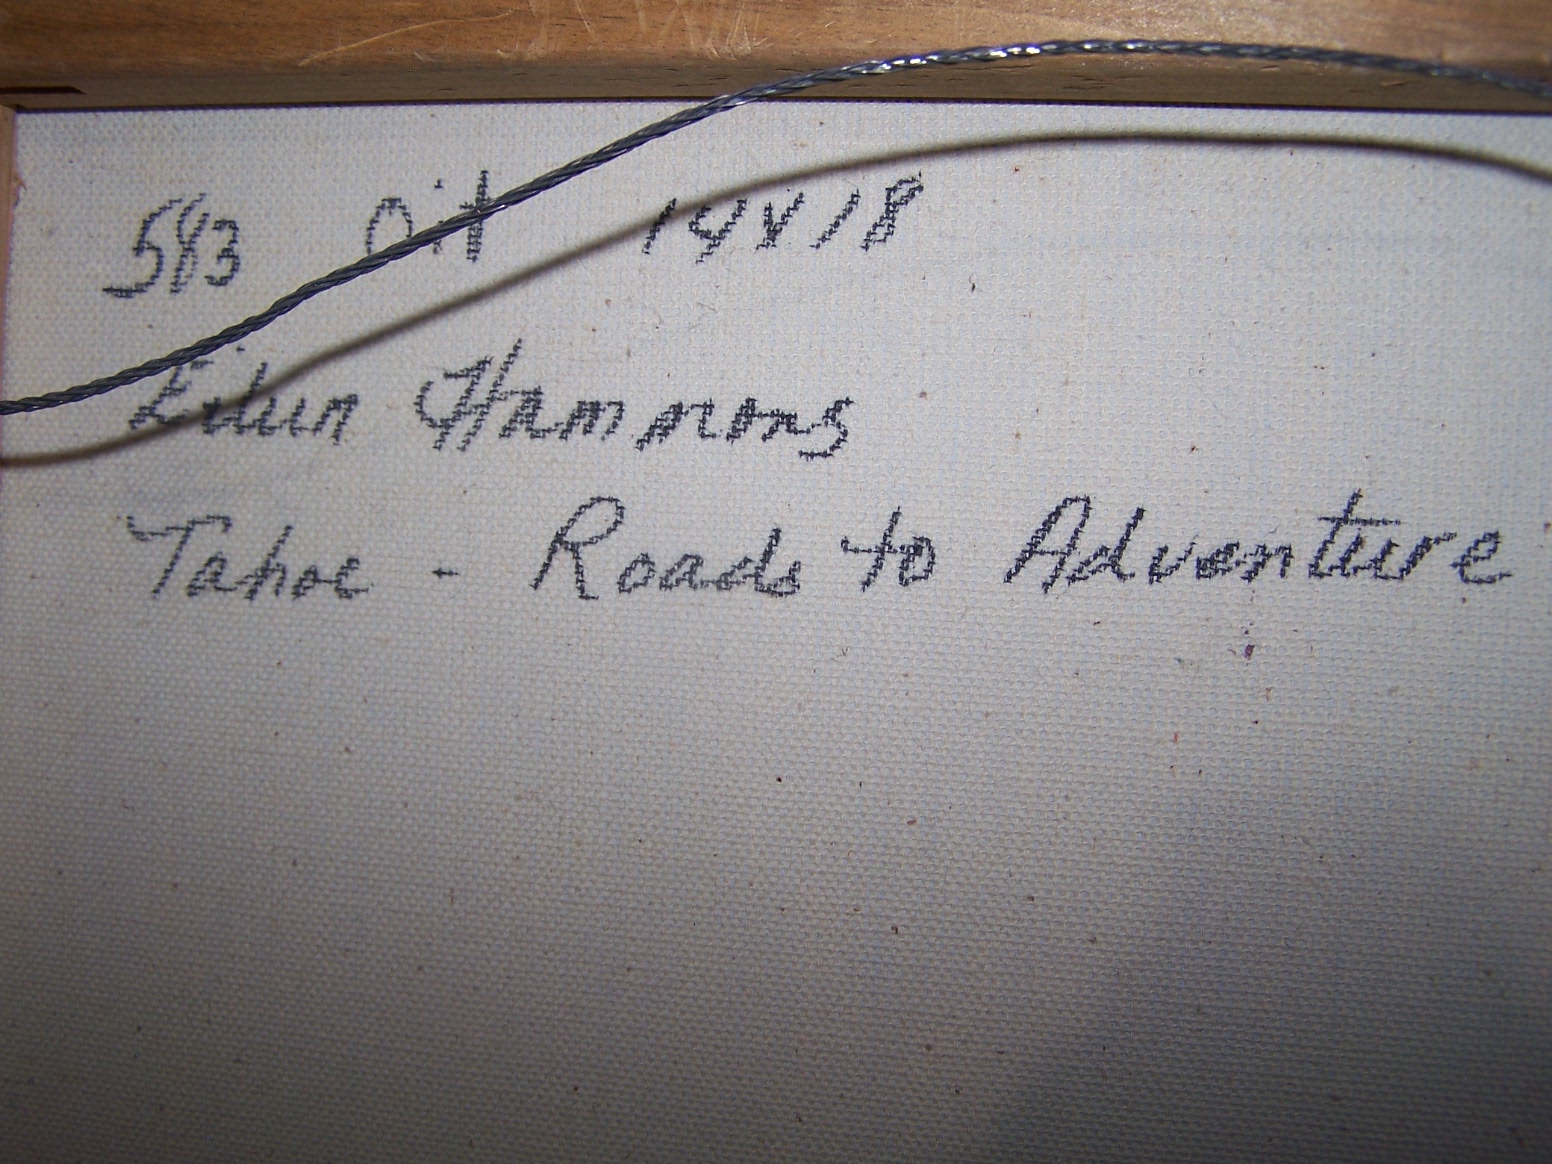 583 Oil 14 X 18
Hammons
Tahoe - Roads to Adventure